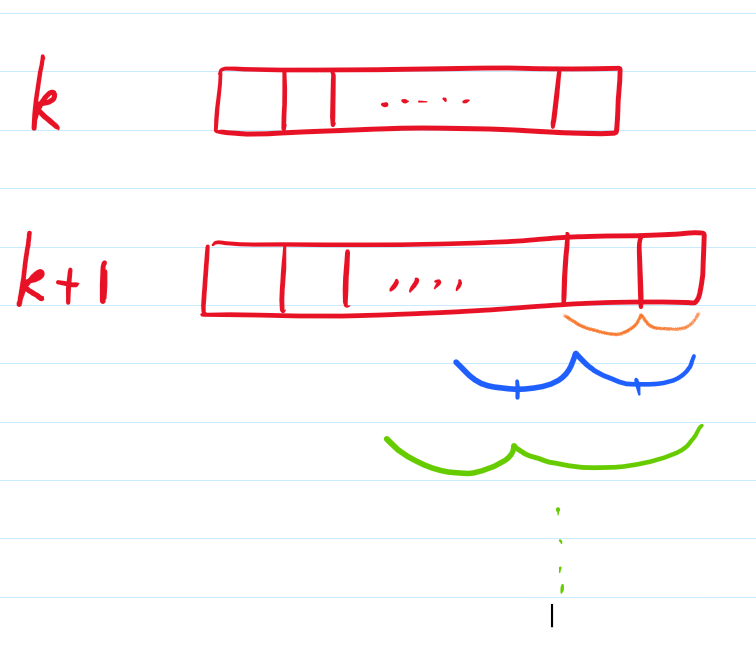 k
k+1